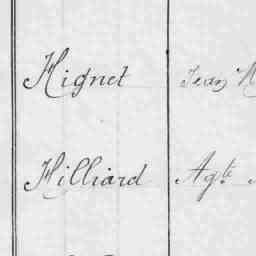 Hignet Jean
Hilliard Agt.